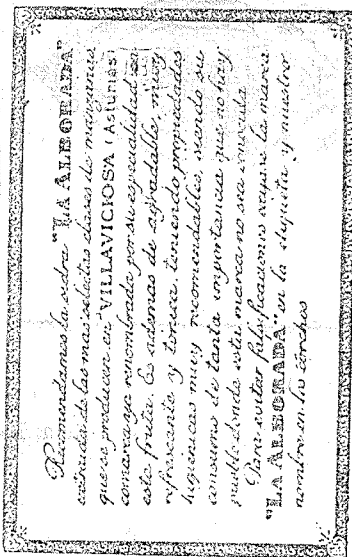 Recomendamos la sidra "LA ALBORADA"
extraida de las mas selectas clases de manzanas
que se producen en VILLAVICIOSA (Asturias)
comarca ya renombrada por su especialidad en
esta fruta. Es ademas de agradable, muy
refrescante y tonica teniendo propiedades
higienicas muy recomendables, siendo su
consumo de tanta importancia que no hay
pueblo donde esta marca no sea conocida
Para evitar falsificaciones exijase la marca
"LA ALBORADA" en la etiqueta y nuestro
nombre en los corchos